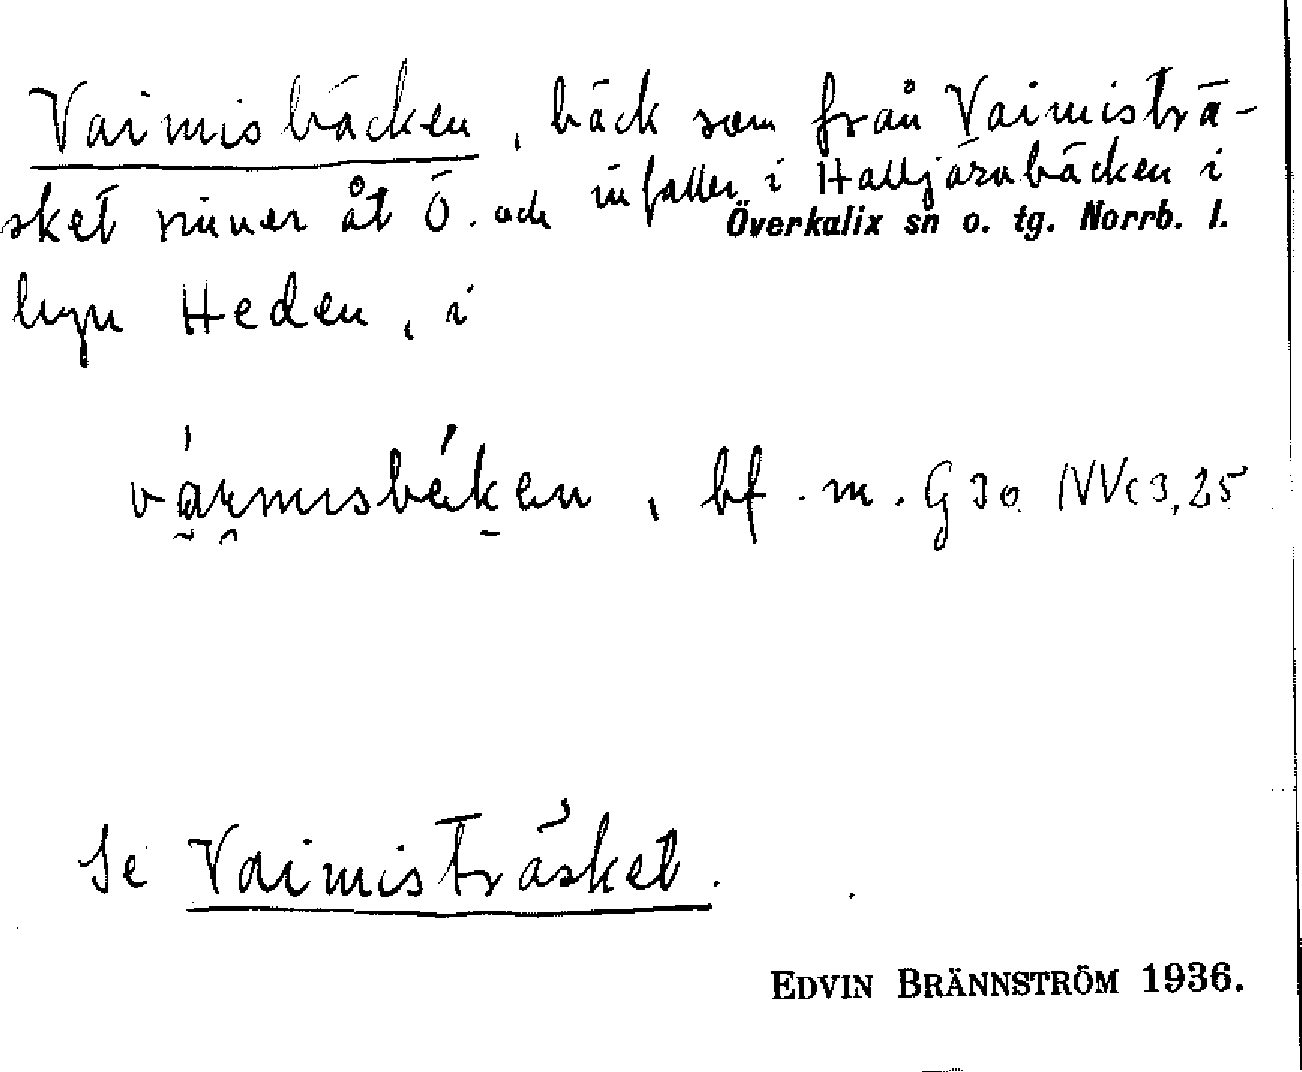 Vaimisbäcken, bäck som från Vaimisträ-
sket rinner åt Ö. och infaller i Halljärnbäcken i
Överkalix sn o. tg. Norrb. l.
byn Heden, i
, bf. m. G30 NVc3,25
Se Vaimisträsket.
EDVIN BRÄNNSTRÖM 1936.